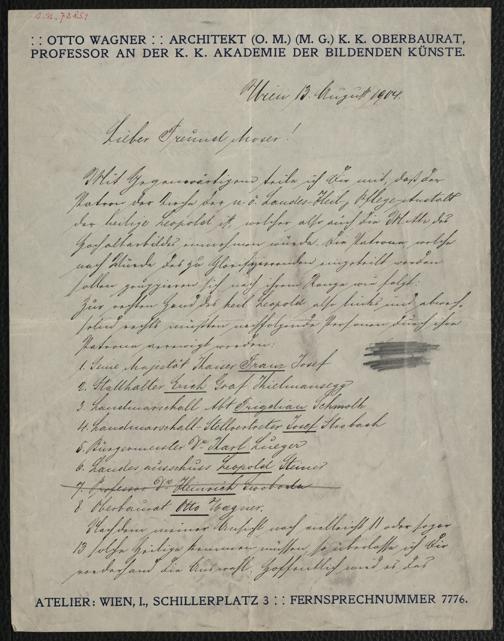 :: OTTO WAGNER :: ARCHITEKT (O. M.) (M. G.) K. K. OBERBAURAT,
PROFESSOR AN DER K. K. AKADEMIE DER BILDENDEN KÜNSTE.
Wien 13. August 1904.
Lieber Freund Moser!
Mit Gegenwärtigem teile ich Dir mit, daß der
Patron der Kirche der n. ö. Landes-Heil- Pflege-Anstalt
der heilige Leopold ist, welcher also auch die Mitte des
Hochaltarbildes einnehmen würde. Die Patrone, welche
nach Würde des zu eingeteilt werden
sollen gruppieren sich nach ihrem Range wie folgt:
Zur rechten Hand des heil. Leopold also links und
rechts müßten nachfolgende Personen durch ihre
Patrone verewigt werden:
1. Seine Majestät Kaiser Franz Josef
2. Statthalter Erich Graf Kielmansegg
3. Landmarschall Abt Frigdian Schmolk
4. Landmarschall-Stellvertreter Josef Strobach
5. Bürgermeister Dr. Karl Lueger
6. Landesausschuss Leopold Steiner
7. Professor Dr. Heinrich Swoboda
8. Oberbaurat Otto Wagner.
Nachdem meiner Ansicht nach vielleicht 11 oder sogar
13 solche Heilige kommen müssen, so überlasse ich Dir
vorderhand die Auswahl. Hoffentlich wird es das
ATELIER: WIEN, I., SCHILLERPLATZ 3 :: FERNSPRECHNUMMER 7776.